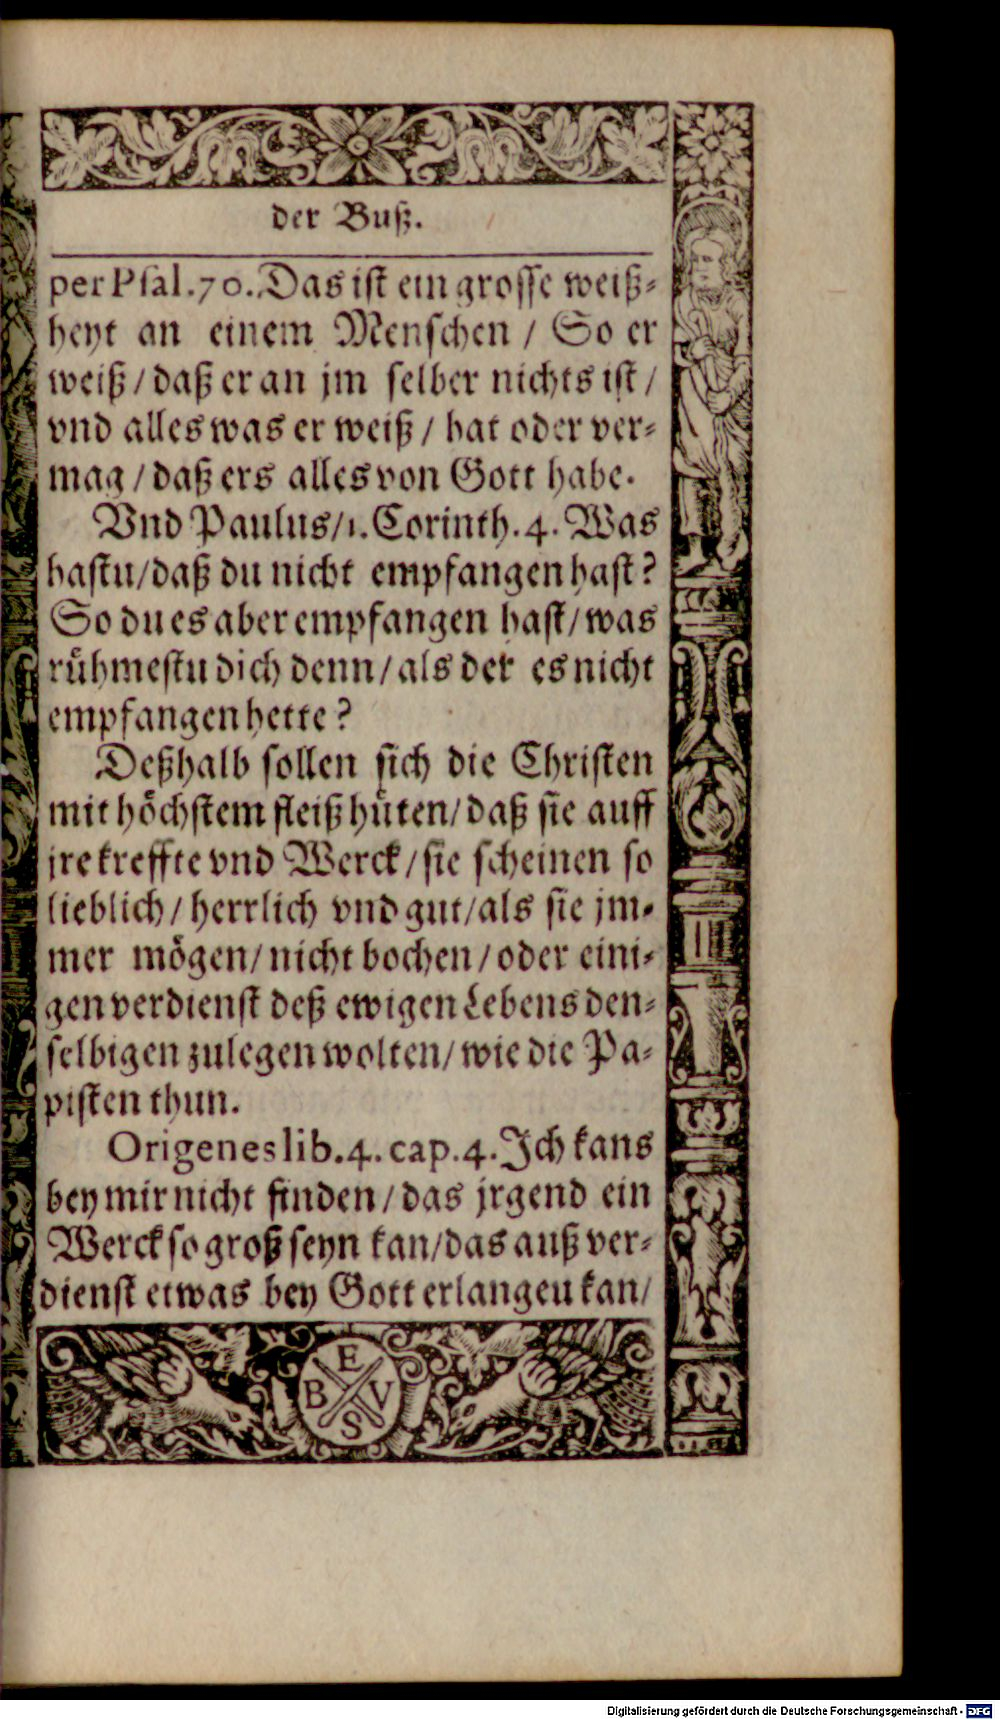 der Buß.
per Psal. 70. Das ist ein grosse weiß⸗
heyt an einem Menschen / So er
weiß / daß er an jm selber nichts ist /
vnd alles was er weiß / hat oder ver⸗
mag / daß ers alles von Gott habe.
Vnd Paulus / 1. Corinth. 4. Was
hastu / daß du nicht empfangen hast?
So du es aber empfangen hast / was
rühmestu dich denn / als der es nicht
empfangen hette?
Deßhalb sollen sich die Christen
mit höchstem fleiß hüten / daß sie auff
jre kreffte vnd Werck / sie scheinen so
lieblich / herrlich vnd gut / als sie jm⸗
mer mögen / nicht bochen / oder eini⸗
gen verdienst deß ewigen Lebens den⸗
selbigen zulegen wolten / wie die Pa⸗
pisten thun.
Origenes lib. 4. cap. 4. Jch kans
bey mir nicht finden / das jrgend ein
Werck so groß seyn kan / das auß ver⸗
dienst etwas bey Gott erlangeu kan /
E
B V
S
Digitalisierung gefördert durch die Deutsche Forschungsgemeinschaft - DFG